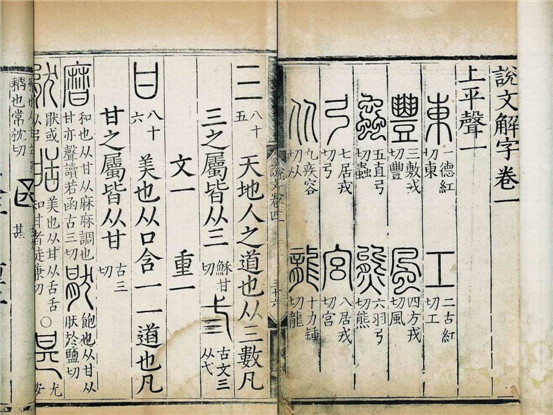 說文解字卷一
上平聲一
東 一德紅切東 工 二古紅切工
豐 三敷戎切豐 風 四方戎切風
蟲 五直弓切蟲 熊 六羽弓切熊
弓 七居戎切弓 宮 八居戎切宮
从 九疾容切从 龍 十力鍾切龍
說文卷四 三十六
三 八十五 天地人之道也从三數凡
三之屬皆从三 穌甘切 弎 古文三从弋
文一 重一
甘 八十六 美也从口含一一道也凡
甘之屬皆从甘 古三切
和也从甘从麻麻調也甘亦聲讀若函古三切 猒 飽也从甘从肰於鹽切
猒或从 甛 美也从甘从舌舌知甘者徒兼切 ○
也常忱切 甚